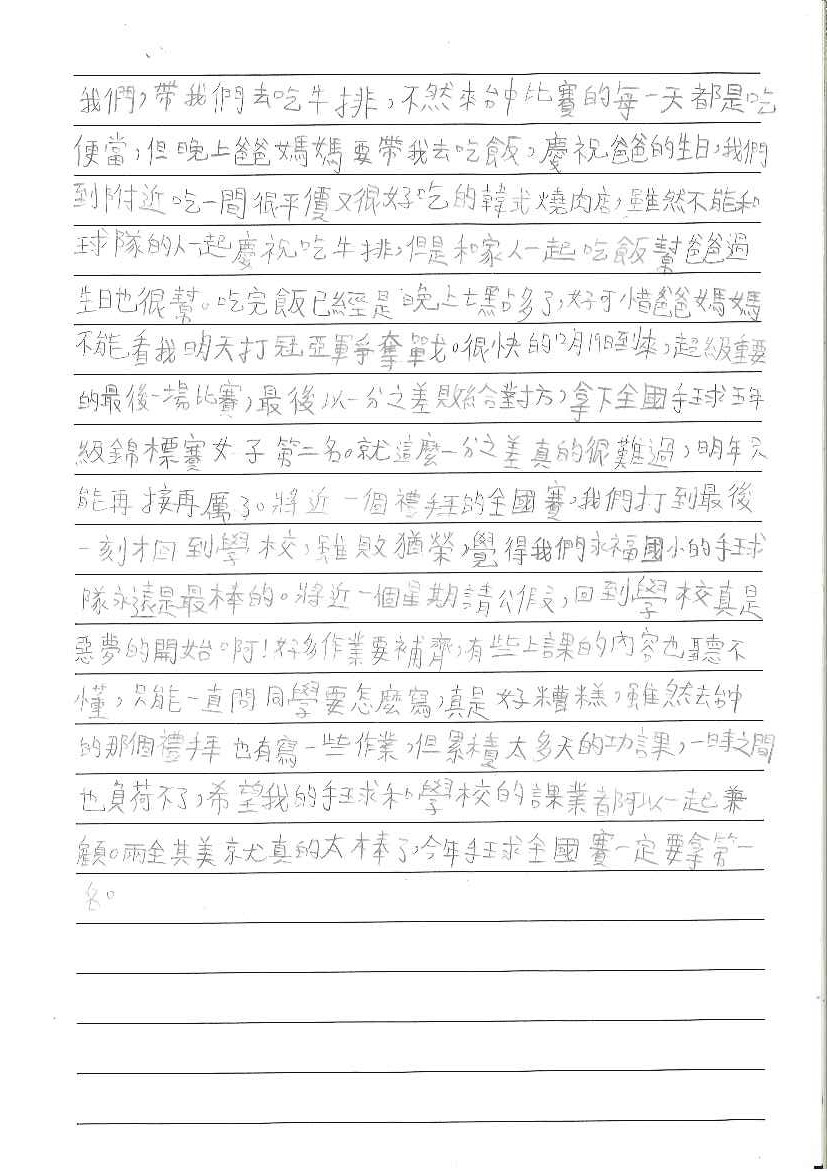 我們，帶我們去吃牛排，不然來台中比賽的每一天都是吃
便當，但晚上爸爸媽媽要帶我去吃飯，慶祝爸爸的生日，我們
到附近吃一間很平價又很好吃的韓式燒肉店，雖然不能和
球隊的人一起慶祝吃牛排，但是和家人一起吃飯幫爸爸過
生日也很幫。吃完飯已經是晚上七點多了，好可惜爸爸媽媽
不能看我明天打冠亞軍爭奪戰。很快的12月19日到來，超級重要
的最後一場比賽，最後以一分之差敗給對方，拿下全國手球五年
級錦標賽女子第二名。就這麼一分之差真的很難過，明年只
能再接再厲了。將近一個禮拜的全國賽，我們打到最後
一刻才回到學校，雖敗猶榮，覺得我們永福國小的手球
隊永遠是最棒的。將近一個星期請公假，回到學校真是
惡夢的開始啊！好多作業要補齊，有些上課的內容也聽不
懂，只能一直問同學要怎麼寫，真是好糟糕，雖然去台中
的那個禮拜也有寫一些作業，但累積太多天的功課，一時之間
也負荷不了，希望我的手球和學校的課業都可以一起兼
顧。兩全其美就真的太棒了，今年手球全國賽一定要拿第一
名。